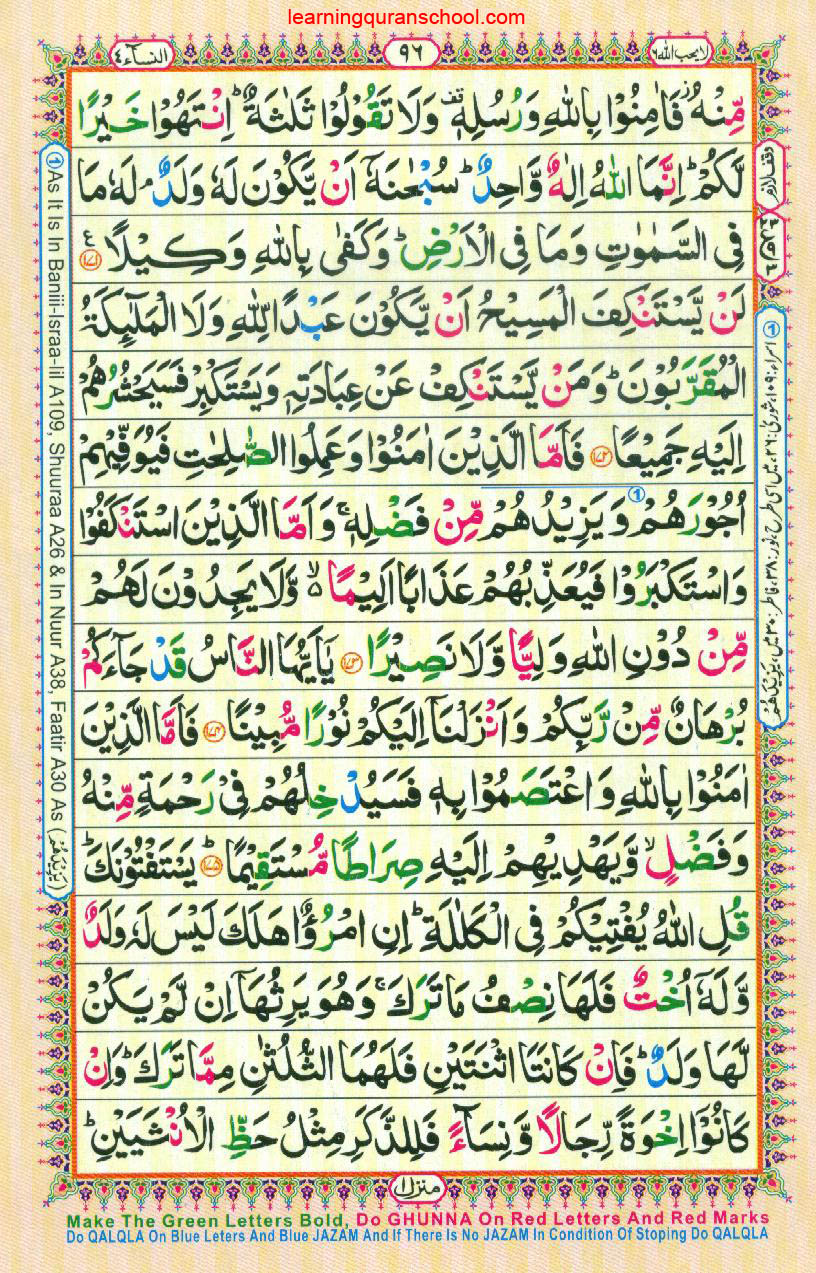 learningquranschool.com
النسآء٤
٩٦
لا يحب الله٦
مِّنْهُ فَاٰمِنُوْا بِاللّٰهِ وَرُسُلِهٖ وَلَا تَقُوْلُوْا ثَلٰثَةٌ ؕ اِنْتَهُوْا خَيْرًا
لَّكُمْ ؕ اِنَّمَا اللّٰهُ اِلٰهٌ وَّاحِدٌ ؕ سُبْحٰنَهٗۤ اَنْ يَّكُوْنَ لَهٗ وَلَدٌ ۘ لَهٗ مَا
فِى السَّمٰوٰتِ وَمَا فِى الْاَرْضِ ؕ وَكَفٰى بِاللّٰهِ وَكِيْلًا ﴿١٧١﴾
لَنْ يَّسْتَنْكِفَ الْمَسِيْحُ اَنْ يَّكُوْنَ عَبْدًا لِّلّٰهِ وَلَا الْمَلٰٓئِكَةُ
الْمُقَرَّبُوْنَ ؕ وَمَنْ يَّسْتَنْكِفْ عَنْ عِبَادَتِهٖ وَيَسْتَكْبِرْ فَسَيَحْشُرُهُمْ
اِلَيْهِ جَمِيْعًا ﴿١٧٢﴾ فَاَمَّا الَّذِيْنَ اٰمَنُوْا وَعَمِلُوا الصّٰلِحٰتِ فَيُوَفِّيْهِمْ
اُجُوْرَهُمْ وَيَزِيْدُهُمْ مِّنْ فَضْلِهٖ ۚ وَاَمَّا الَّذِيْنَ اسْتَنْكَفُوْا
وَاسْتَكْبَرُوْا فَيُعَذِّبُهُمْ عَذَابًا اَلِيْمًا ۙ۬ وَّلَا يَجِدُوْنَ لَهُمْ
مِّنْ دُوْنِ اللّٰهِ وَلِيًّا وَّلَا نَصِيْرًا ﴿١٧٣﴾ يٰۤاَيُّهَا النَّاسُ قَدْ جَآءَكُمْ
بُرْهَانٌ مِّنْ رَّبِّكُمْ وَاَنْزَلْنَاۤ اِلَيْكُمْ نُوْرًا مُّبِيْنًا ﴿١٧٤﴾ فَاَمَّا الَّذِيْنَ
اٰمَنُوْا بِاللّٰهِ وَاعْتَصَمُوْا بِهٖ فَسَيُدْخِلُهُمْ فِىْ رَحْمَةٍ مِّنْهُ
وَفَضْلٍ ۙ وَّيَهْدِيْهِمْ اِلَيْهِ صِرَاطًا مُّسْتَقِيْمًا ؕ ﴿١٧٥﴾ يَسْتَفْتُوْنَكَ ؕ
قُلِ اللّٰهُ يُفْتِيْكُمْ فِى الْكَلٰلَةِ ؕ اِنِ امْرُؤٌا هَلَكَ لَيْسَ لَهٗ وَلَدٌ
وَّلَهٗۤ اُخْتٌ فَلَهَا نِصْفُ مَا تَرَكَ ۚ وَهُوَ يَرِثُهَاۤ اِنْ لَّمْ يَكُنْ
لَّهَا وَلَدٌ ؕ فَاِنْ كَانَتَا اثْنَتَيْنِ فَلَهُمَا الثُّلُثٰنِ مِمَّا تَرَكَ ؕ وَاِنْ
كَانُوْۤا اِخْوَةً رِّجَالًا وَّنِسَآءً فَلِلذَّكَرِ مِثْلُ حَظِّ الْاُنْثَيَيْنِ ؕ
وقف لازم
ع
① As It Is In Baniii-Israa-Iil A109, Shuuraa A26 & In Nuur A38, Faatir A30 As (يَزِيْدَهُمْ)
منزل١
Make The Green Letters Bold, Do GHUNNA On Red Letters And Red Marks
Do QALQLA On Blue Leters And Blue JAZAM And If There Is No JAZAM In Condition Of Stoping Do QALQLA